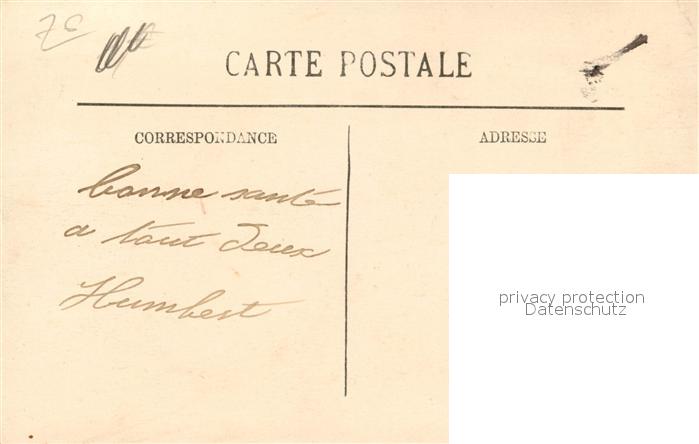 CARTE POSTALE
CORRESPONDANCE
ADRESSE
bonne santé
a tout deux
Humbert
privacy protection
Datenschutz